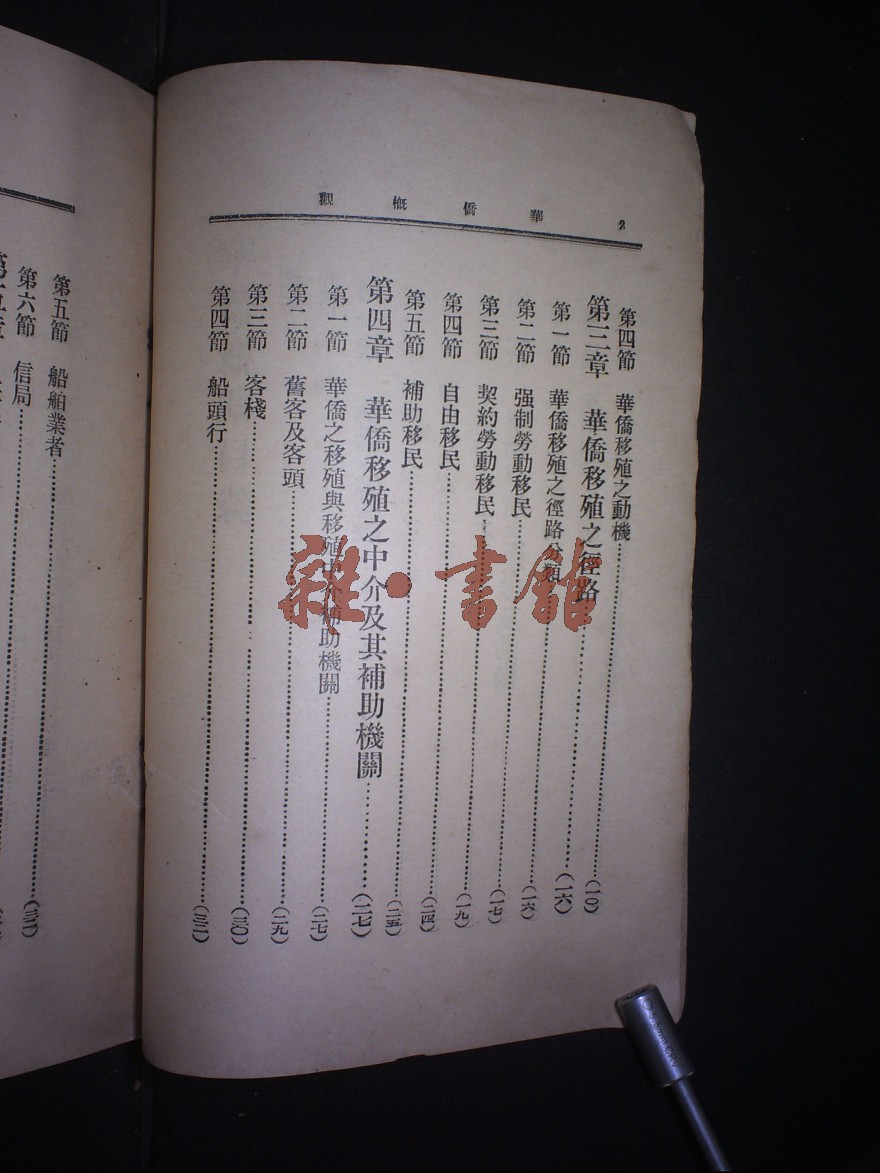 2 華僑概觀
第四節 華僑移殖之動機……(一〇)
第三章 華僑移殖之徑路……(一六)
第一節 華僑移殖之徑路分類……(一六)
第二節 强制勞動移民……(一七)
第三節 契約勞動移民……(一九)
第四節 自由移民……(二四)
第五節 補助移民……(二五)
第四章 華僑移殖之中介及其補助機關……(二七)
第一節 華僑之移殖與移殖中介補助機關……(二七)
第二節 舊客及客頭……(二九)
第三節 客棧……(三〇)
第四節 船頭行……(三二)
第五節 船舶業者……(三二)
第六節 信局……
雜·書館